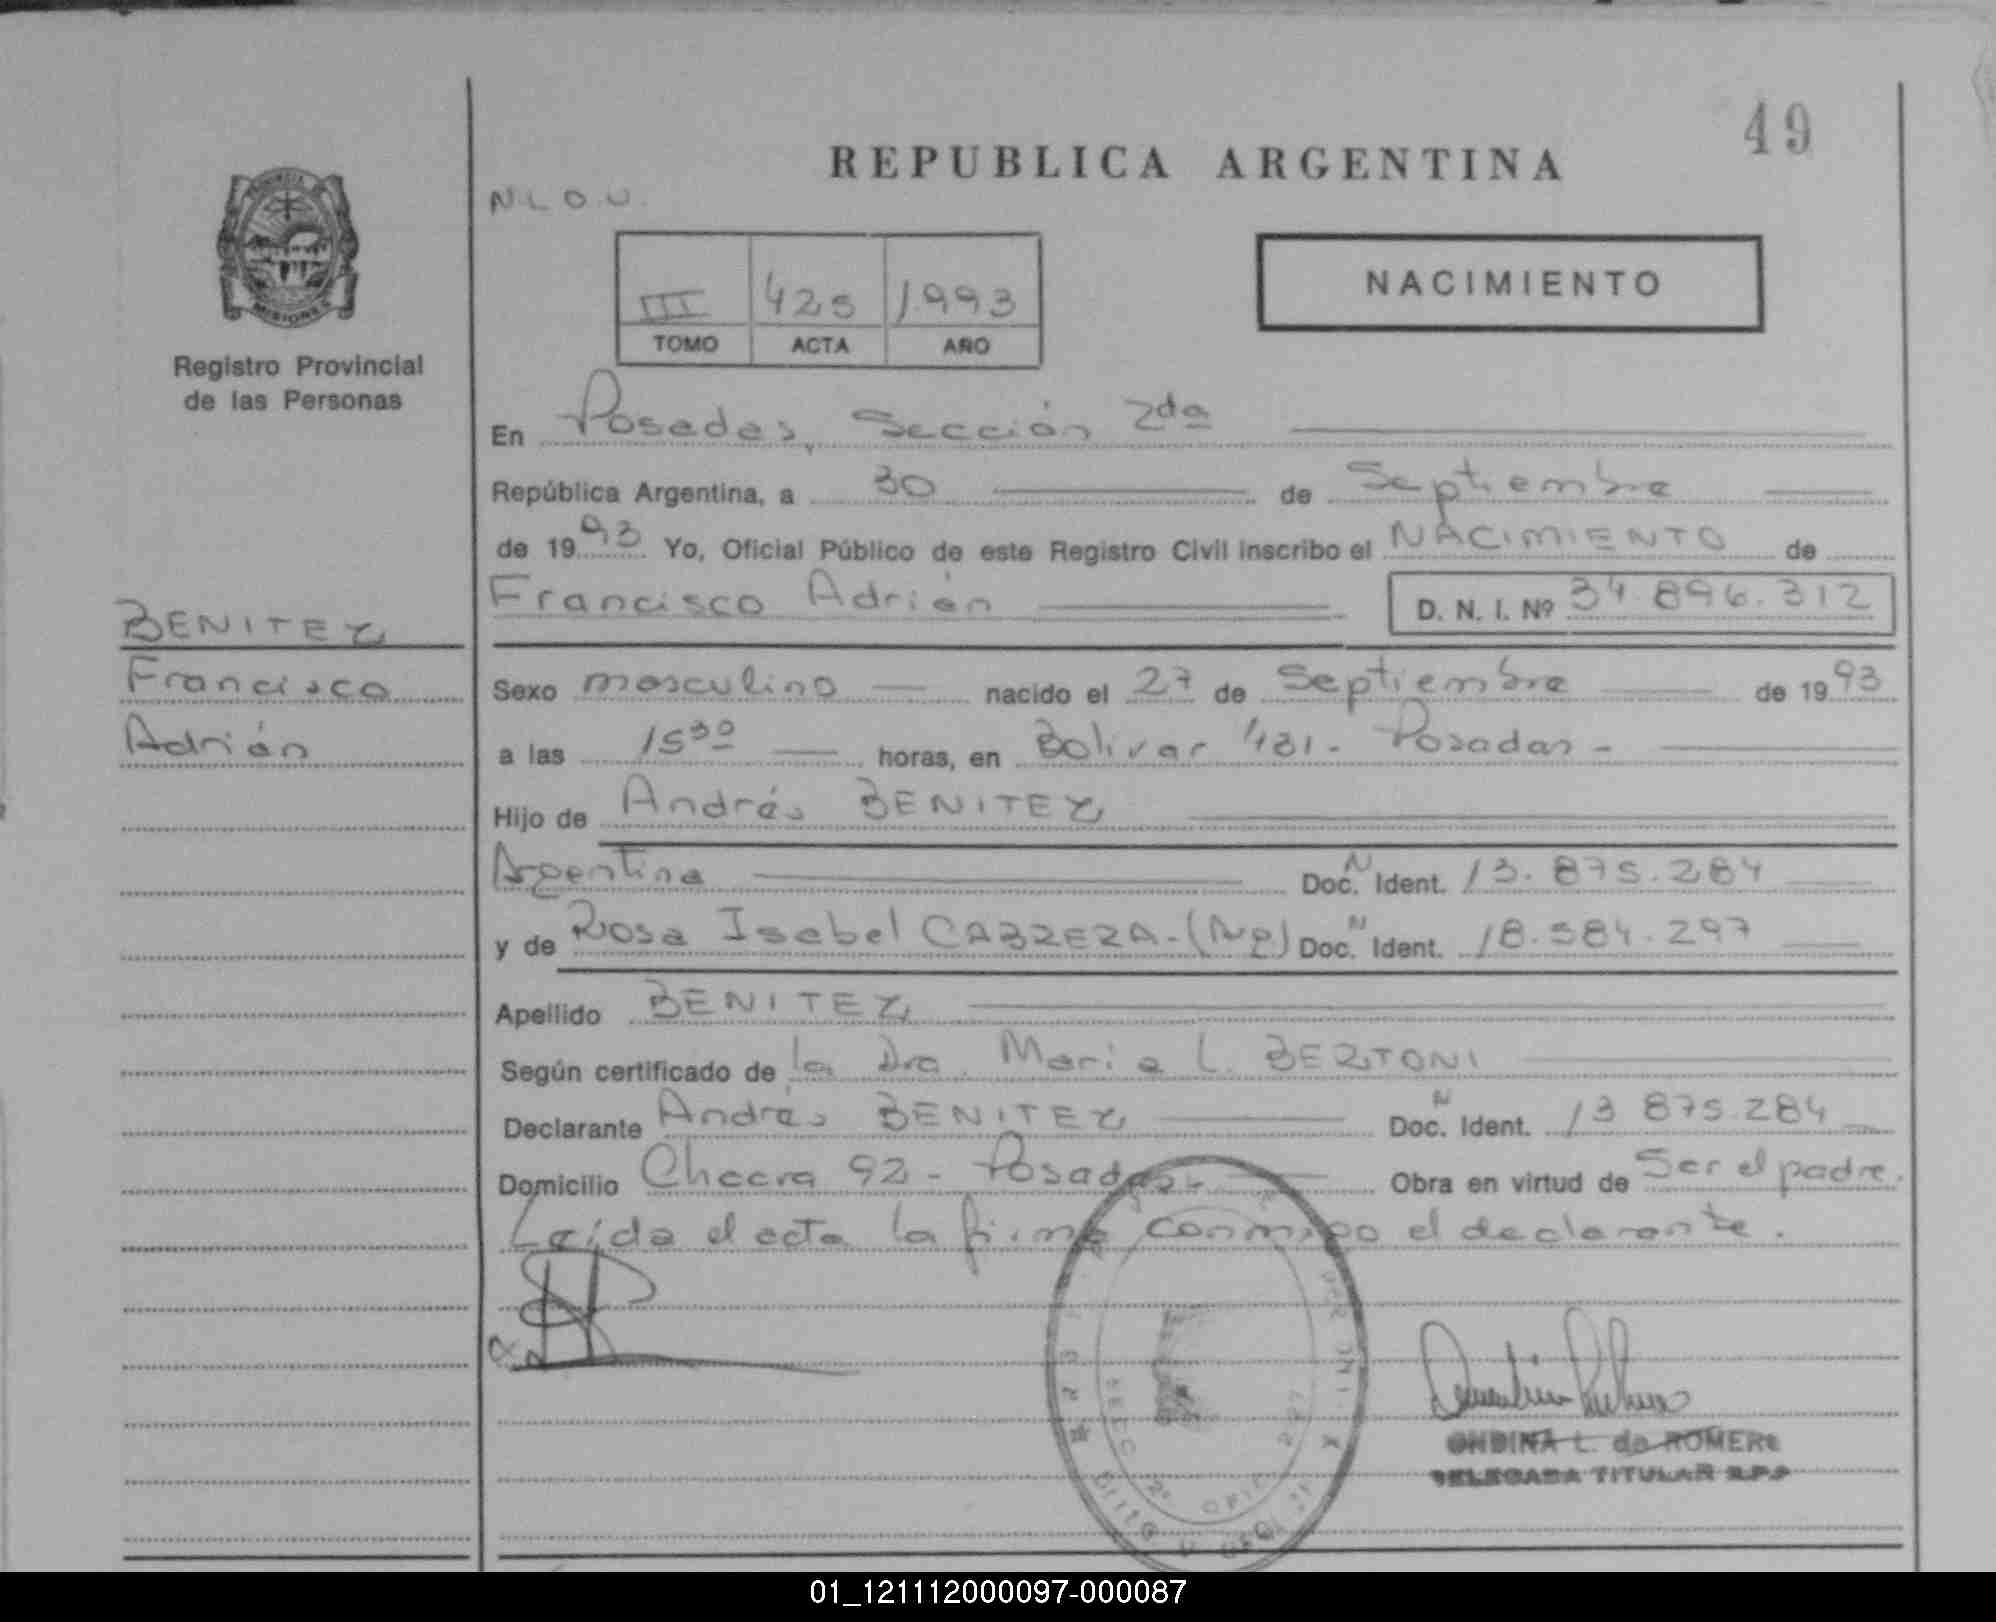 49
REPUBLICA ARGENTINA
N.L.O.U.
MISIONES
Registro Provincial
de las Personas
III 425 1.993
TOMO ACTA AÑO
NACIMIENTO
En Posadas, Sección 2da
República Argentina, a 30 de Septiembre
de 1993 Yo, Oficial Público de este Registro Civil inscribo el NACIMIENTO de
Francisco Adrián D. N. I. Nº 34.896.312
BENITEZ
Francisco
Adrián
Sexo masculino nacido el 27 de Septiembre de 1993
a las 15³⁰ horas, en Bolivar 481- Posadas-
Hijo de Andrés BENITEZ
Argentina Doc. N Ident. 13.875.284
y de Rosa Isabel CABRERA-(Arg) Doc. N Ident. 18.584.297
Apellido BENITEZ
Según certificado de la Dra. Maria L. BERTONI
Declarante Andrés BENITEZ Doc. N Ident. 13 875.284
Domicilio Chacra 92- Posadas- Obra en virtud de Ser el padre.
Leída el acta la firma conmigo el declarante.
ONDINA L. de ROMERO
DELEGADA TITULAR R.P.P
01_121112000097-000087